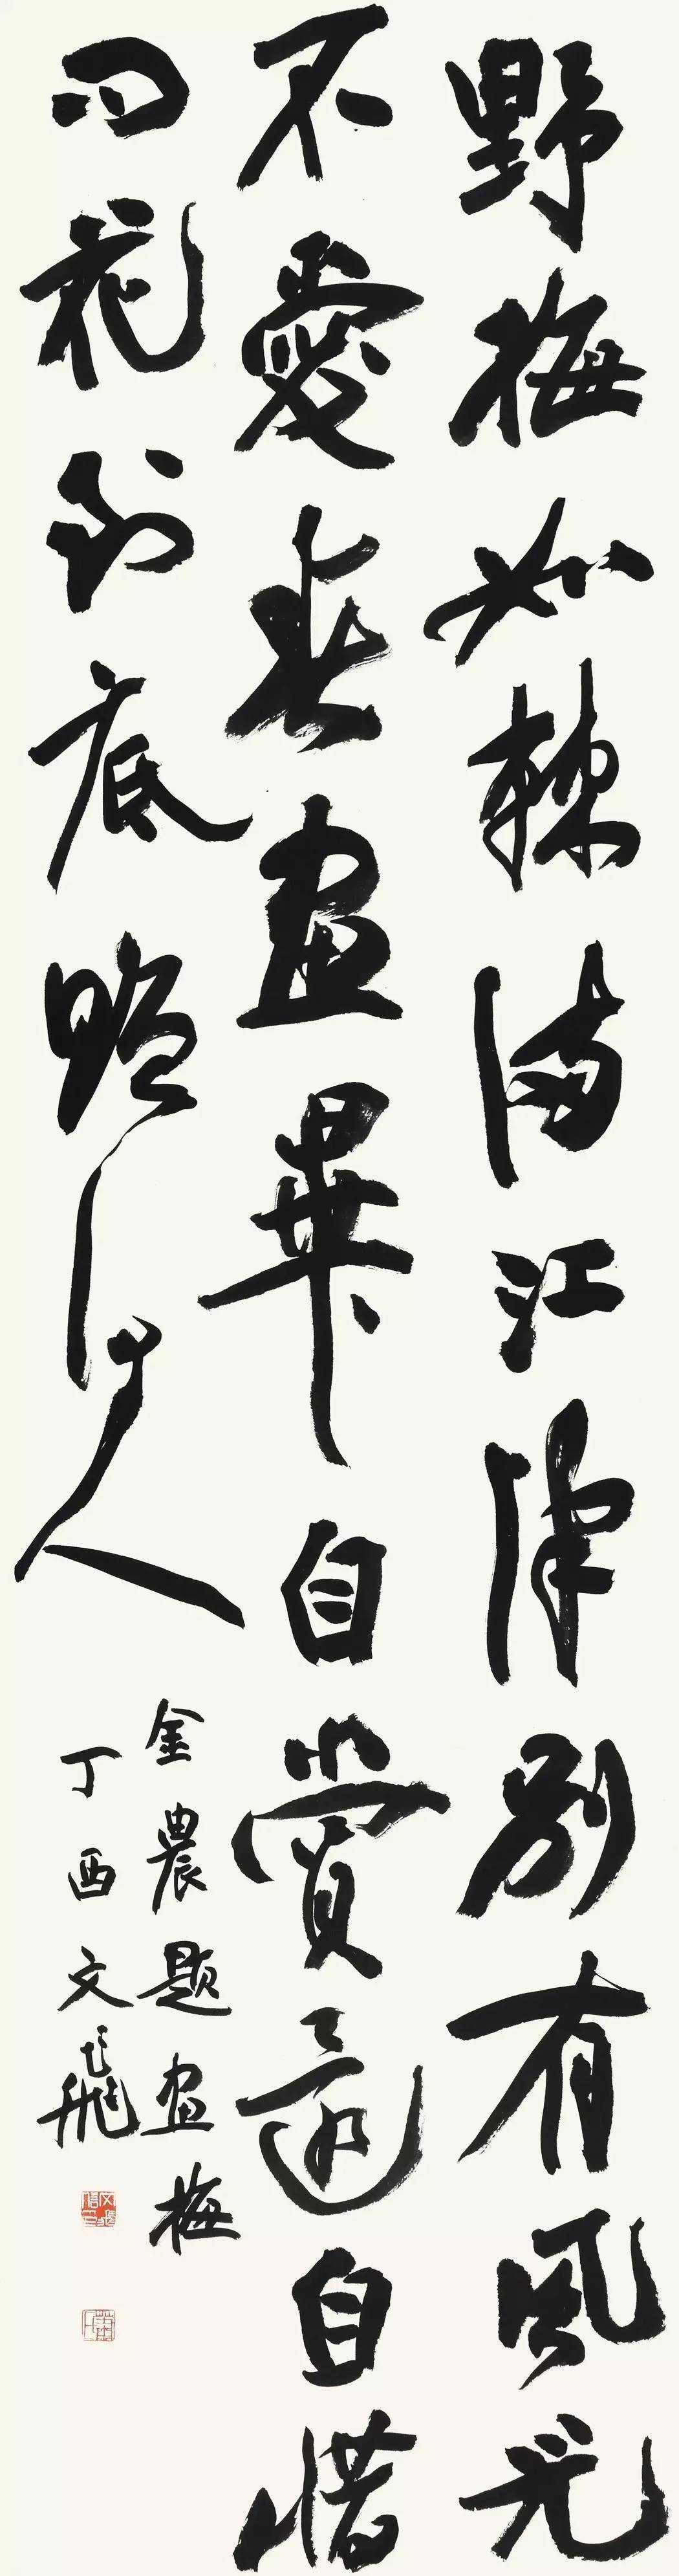 野梅如棘滿江津別有風光
不愛春畫畢自賞還自惜
問花到底贈何人
金農題畫梅
丁酉文飛